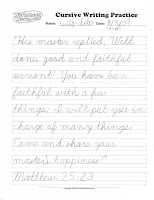 Cursive Writing Practice
Name: Date:
"His master replied, 'Will
done, good and faithful
servant! You have been
faithful with a few
things; I will put you in
charge of many things.
Come and share your
master's happiness!'
Matthew 25:23